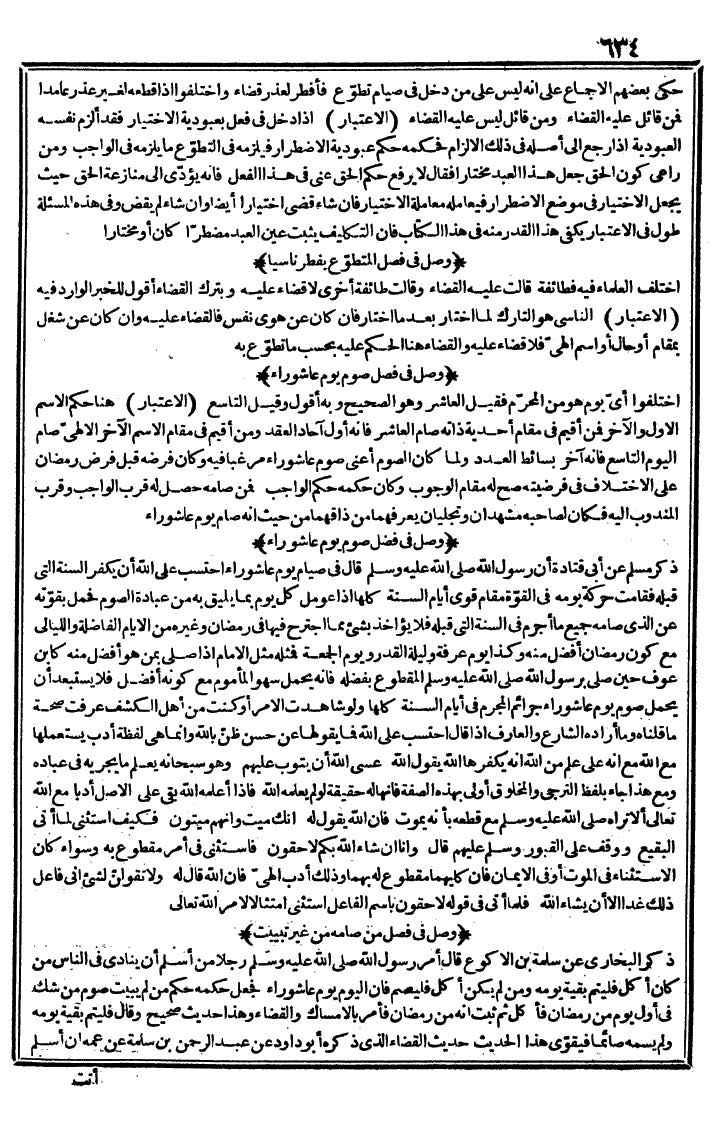 ٦٣٤
حكى بعضهم الاجماع على انه ليس على من دخل فى صيام تطوّع فأفطر لعذر قضاء واختلفوا اذا قطعه لغير عذر عامدا
فمن قائل عليه القضاء ومن قائل ليس عليه القضاء (الاعتبار) اذا دخل فى فعل بعبودية الاختيار فقد ألزم نفسه
العبودية اذا رجع الى أصله فى ذلك الالزام فحكمه حكم عبودية الاضطرار فيلزمه فى التطوّع ما يلزمه فى الواجب ومن
راعى كون الحق جعل هذا العبد مختارا فقال لا يرفع حكم الحق عنى فى هذا الفعل فانه يؤدّى الى منازعة الحق حيث
يجعل الاختيار فى موضع الاضطرار فيعامله معاملة الاختيار فان شاء قضى اختيارا أيضا وان شاء لم يقض وفى هذه المسئلة
طول فى الاعتبار يكفى هذا القدر منه فى هذا الكتاب فان التكليف يثبت عين العبد مضطرّا كان أو مختارا
﴿وصل فى فصل المتطوّع يفطر ناسيا﴾
اختلف العلماء فيه فطائفة قالت عليه القضاء وقالت طائفة أخرى لا قضاء عليه وبترك القضاء أقول للخبر الوارد فيه
(الاعتبار) الناسى هو التارك لما اختار بعد ما اختار فان كان عن هوى نفس فالقضاء عليه وان كان عن شغل
بمقام أو حال أو اسم الهىّ فلا قضاء عليه والقضاء هنا الحكم عليه بحسب ما تطوّع به
﴿وصل فى فصل صوم يوم عاشوراء﴾
اختلفوا أىّ يوم هو من المحرّم فقيل العاشر وهو الصحيح وبه أقول وقيل التاسع (الاعتبار) هنا حكم الاسم
الاول والآخر فمن أقيم فى مقام أحدية ذاته صام العاشر فانه أول آحاد العقد ومن أقيم فى مقام الاسم الآخر الالهىّ صام
اليوم التاسع فانه آخر بسائط العدد ولما كان الصوم أعنى صوم عاشوراء مرغبا فيه وكان فرضه قبل فرض رمضان
على الاختلاف فى فرضيته صح له مقام الوجوب وكان حكمه حكم الواجب فمن صامه حصل له قرب الواجب وقرب
المندوب اليه فكان لصاحبه مشهدان وتجليان يعرفهما من ذاقهما من حيث انه صام يوم عاشوراء
﴿وصل فى فضل صوم يوم عاشوراء﴾
ذكر مسلم عن أبى قتادة أن رسول الله صلى الله عليه وسلم قال فى صيام يوم عاشوراء احتسب على الله أن يكفر السنة التى
قبله فقامت حركة يومه فى القوّة مقام قوى أيام السنة كلها اذا عومل كل يوم بما يليق به من عبادة الصوم فحمل بقوّته
عن الذى صامه جميع ما أجرم فى السنة التى قبله فلا يؤاخذ بشئ مما اجترح فيها فى رمضان وغيره من الايام الفاضلة والليالى
مع كون رمضان أفضل منه وكذا يوم عرفة وليلة القدر ويوم الجمعة فمثله مثل الامام اذا صلى بمن هو أفضل منه كابن
عوف حين صلى برسول الله صلى الله عليه وسلم المقطوع بفضله فانه يحمل سهو المأموم مع كونه أفضل فلا يستبعد أن
يحمل صوم يوم عاشوراء جرائم المجرم فى أيام السنة كلها ولو شاهدت الامر أو كنت من أهل الكشف عرفت صحة
ما قلناه وما أراده الشارع والعارف اذا قال احتسب على الله فما يقولها عن حسن ظنّ بالله وانما هى لفظة أدب يستعملها
مع الله مع انه على علم من الله انه يكفرها الله يقول الله عسى الله أن يتوب عليهم وهو سبحانه يعلم ما يجريه فى عباده
ومع هذا جاء بلفظ الترجى والمخلوق أولى بهذه الصفة فانها له حقيقة لو لم يعلمه الله فاذا أعلمه الله بقى على الاصل أدبا مع الله
تعالى ألا تراه صلى الله عليه وسلم مع قطعه بأنه يموت فان الله يقول له انك ميت وانهم ميتون فكيف استثنى لما أتى
البقيع ووقف على القبور وسلم عليهم قال وانا ان شاء الله بكم لاحقون فاستثنى فى أمر مقطوع به وسواء كان
الاستثناء فى الموت أو فى الايمان فان كليهما مقطوع له بهما وذلك أدب الهىّ فان الله قال له ولا تقولنّ لشئ انى فاعل
ذلك غدا الا أن يشاء الله فلما أتى فى قوله لاحقون باسم الفاعل استثنى امتثالا لامر الله تعالى
﴿وصل فى فصل من صامه من غير تبييت﴾
ذكر البخارى عن سلمة بن الاكوع قال أمر رسول الله صلى الله عليه وسلم رجلا من أسلم أن ينادى فى الناس من
كان أكل فليتم بقية يومه ومن لم يكن أكل فليصم فان اليوم يوم عاشوراء فجعل حكمه حكم من لم يبيت صوم من شك
فى أول يوم من رمضان فأكل ثم ثبت انه من رمضان فأمر بالامساك والقضاء وهذا حديث صحيح وقال فليتم بقية يومه
ولم يسمه صائما فيقوّى هذا الحديث حديث القضاء الذى ذكره أبو داود عن عبد الرحمن بن سلمة عن عمه ان أسلم
أتت